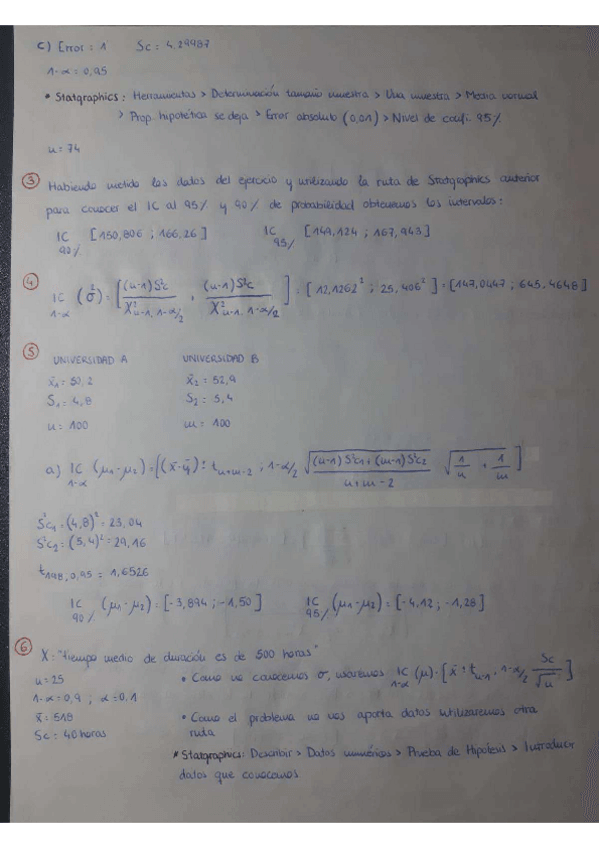 c) Error = 1 Sc = 4,29487
1-α = 0,95
* Statgraphics: Herramientas > Determinación tamaño muestra > Una muestra > Media normal
> Prop. hipotética se deja > Error absoluto (0,01) > Nivel de confi. 95%
n = 74
③ Habiendo metido los datos del ejercicio y utilizando la ruta de Statgraphics anterior
para conocer el IC al 95% y 90% de probabilidad obtenemos los intervalos:
IC 90% [150,806 ; 166,26] IC 95% [149,124 ; 167,943]
④ IC 1-α (σ²) = [(n-1)S²c / χ²n-1, 1-α/2 , (n-1)S²c / χ²n-1, 1-α/2] = [12,1262² ; 25,406²] = [147,0447 ; 645,4648]
⑤ UNIVERSIDAD A UNIVERSIDAD B
x̄₁ = 50,2 x̄₂ = 52,9
S₁ = 4,8 S₂ = 5,4
n = 100 m = 100
a) IC 1-α (μ₁-μ₂) = [(x̄-ȳ) ± t n+m-2 ; 1-α/2 √((n-1)S²c₁ + (m-1)S²c₂ / n+m-2) √(1/n + 1/m)]
S²c₁ = (4,8)² = 23,04
S²c₂ = (5,4)² = 29,16
t198, 0,95 = 1,6526
IC 90% (μ₁-μ₂) = [-3,894 ; -1,50] IC 95% (μ₁-μ₂) = [-4,12 ; -1,28]
⑥ X: "tiempo medio de duración es de 500 horas"
n = 25 • Como no conocemos σ, usaremos IC 1-α (μ) = [x̄ ± t n-1, 1-α/2 Sc/√n]
1-α = 0,9 ; α = 0,1
x̄ = 518 • Como el problema no nos aporta datos utilizaremos otra
Sc = 40 horas ruta
* Statgraphics: Describir > Datos numéricos > Prueba de Hipótesis > Introducir
datos que conocemos